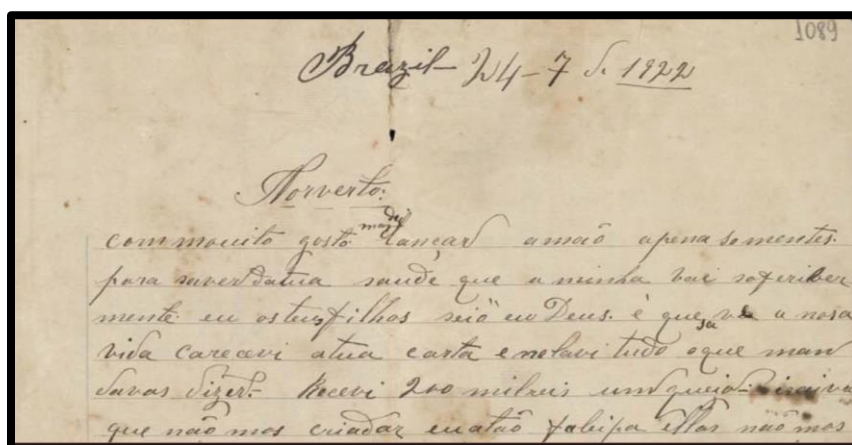 1089
Brazil 24-7 d. 1922
Norverto:
com mouito gosto mandei lançar amaõ apena somentes.
para saver datua saude que a minha vai soferiber
mente eu os teus filhos seiõ eu Deus. é que sa ve a nosa
vida carecevi atua carta enelavi tudo oque man
davas dizer. Recevi 200 milreis um queijo
que naõ mos criadar eu ataõ ellas naõ mos